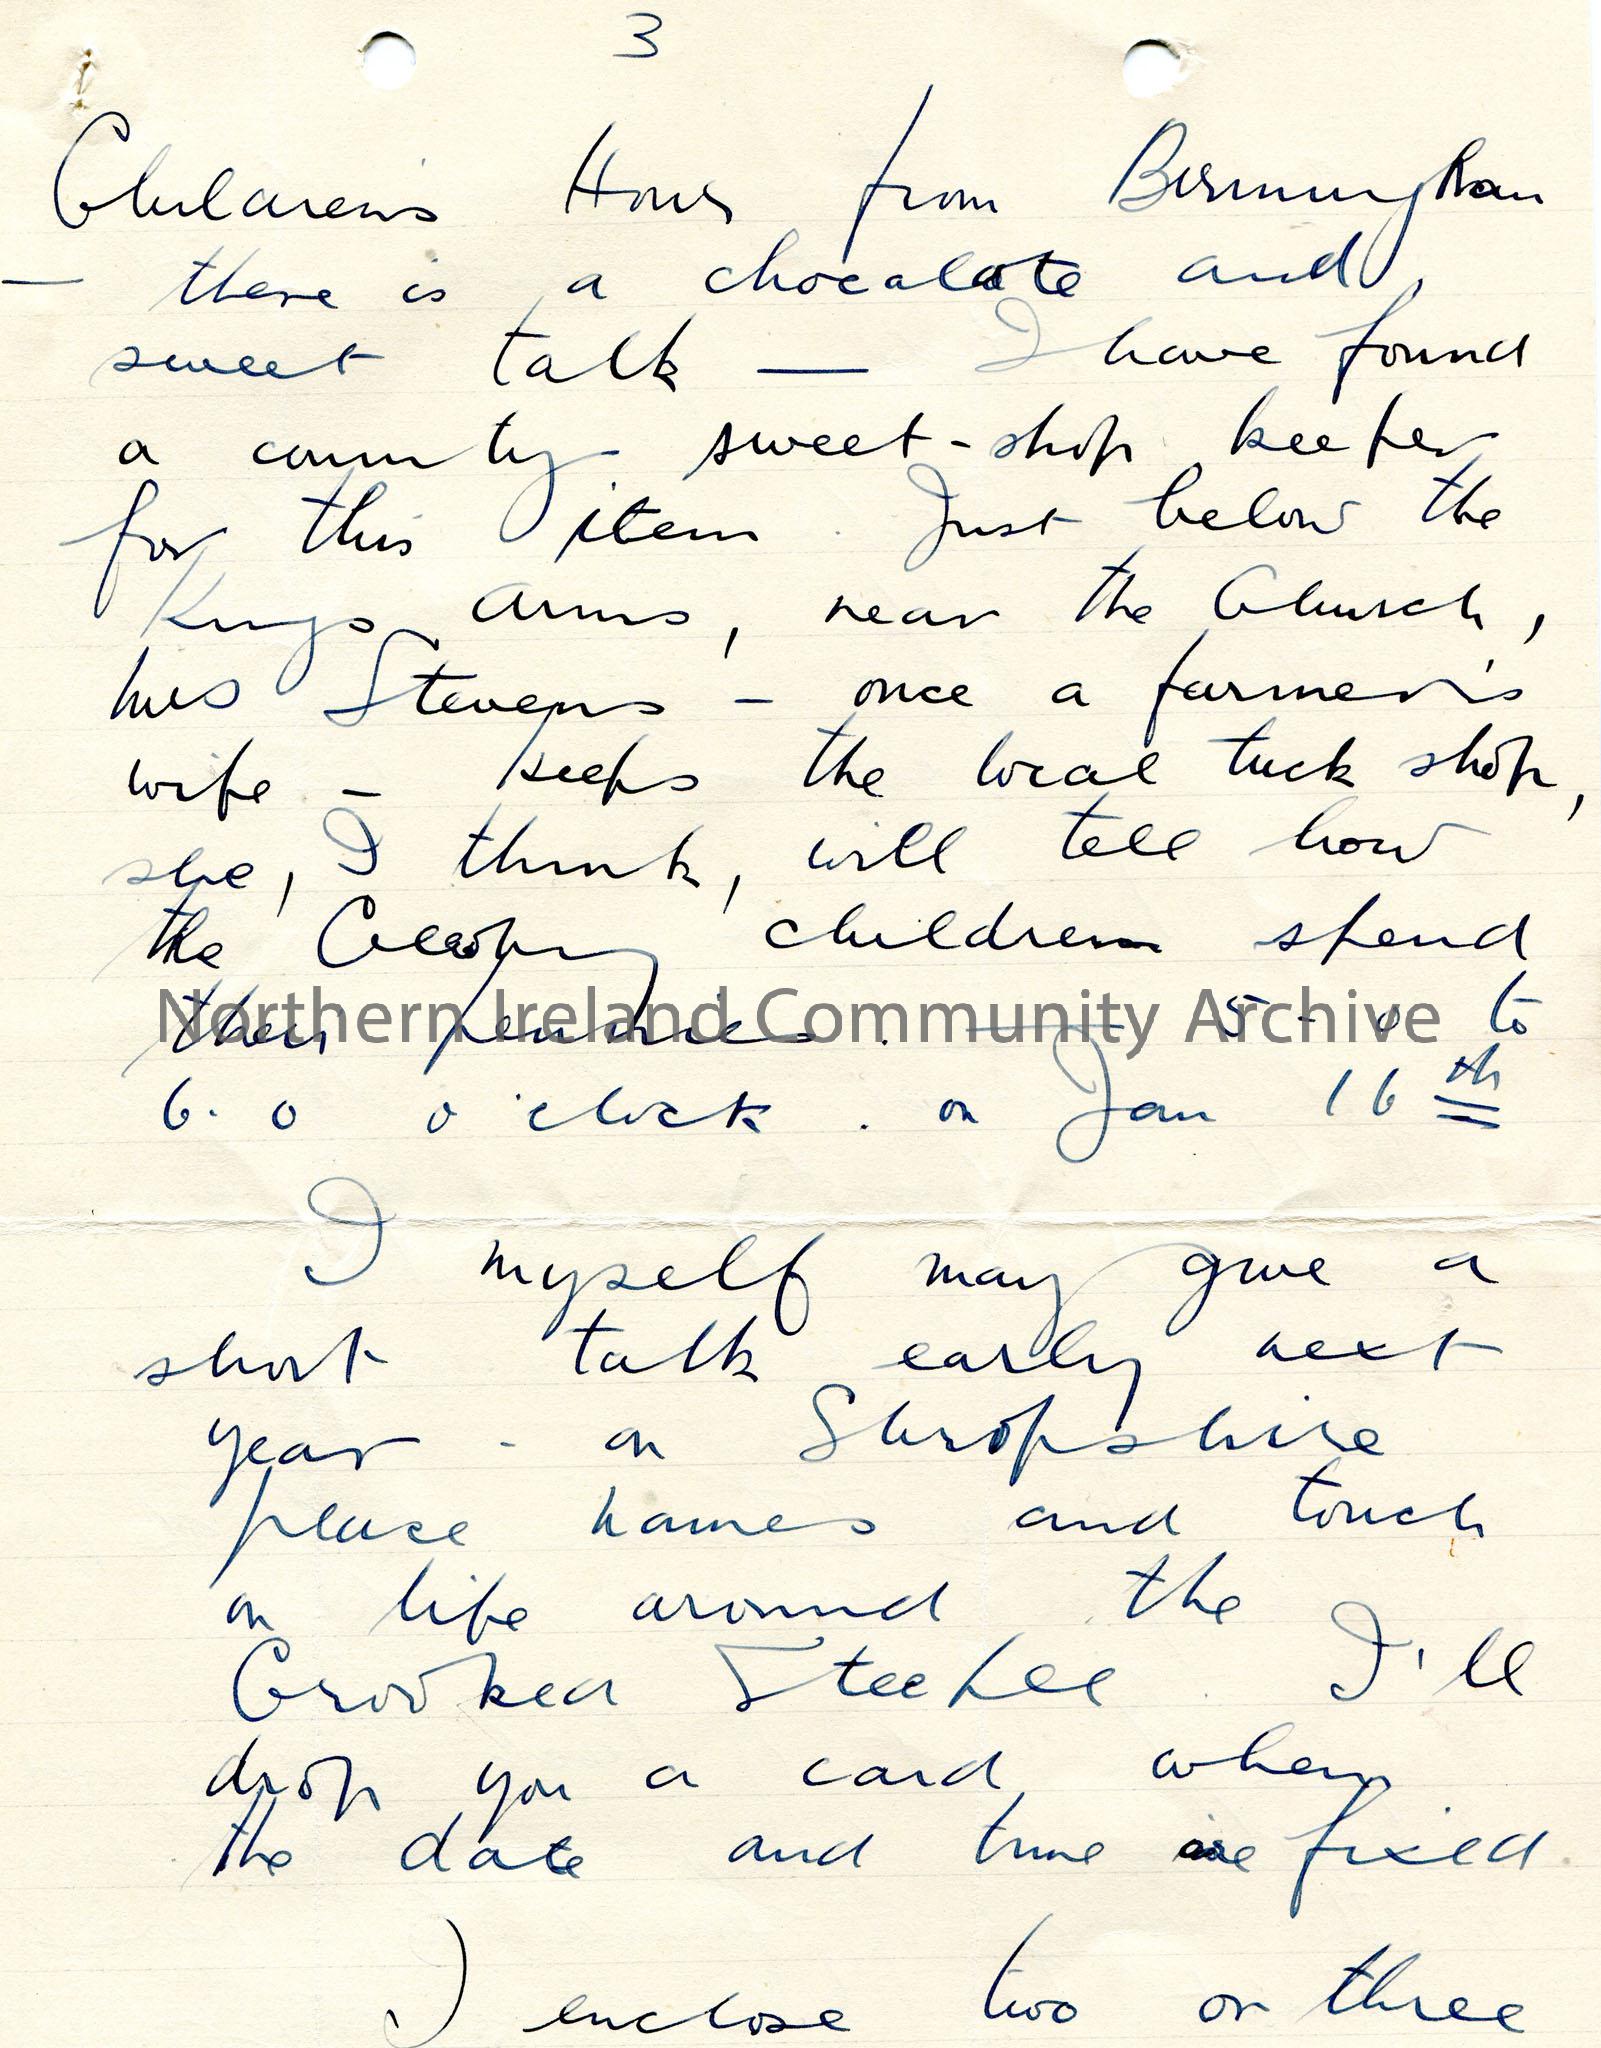 3
Children's Hour from Birmingham
— there is a chocolate and
sweet talk — I have found
a country sweet-shop keeper
for this item. Just below the
Kings Arms, near the Church,
Mrs Stevens - once a farmer's
wife - keeps the local tuck shop,
she, I think, will tell how
the Cleobury children spend
their pennies. — 5-0 to
Northern Ireland Community Archive
6.0 o'clock. on Jan 16th
I myself may give a
short talk early next
year - on Shropshire
place names and touch
on life around the
Crooked Steeple. I'll
drop you a card when
the date and time are fixed.
I enclose two or three